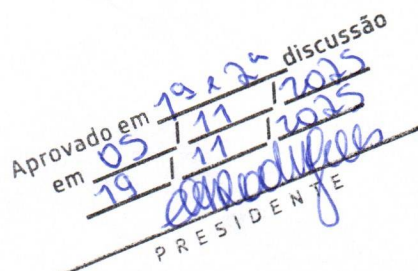 Aprovado em 1ª e 2ª discussão
em 05 / 11 / 2025
19 / 11 / 2025
PRESIDENTE